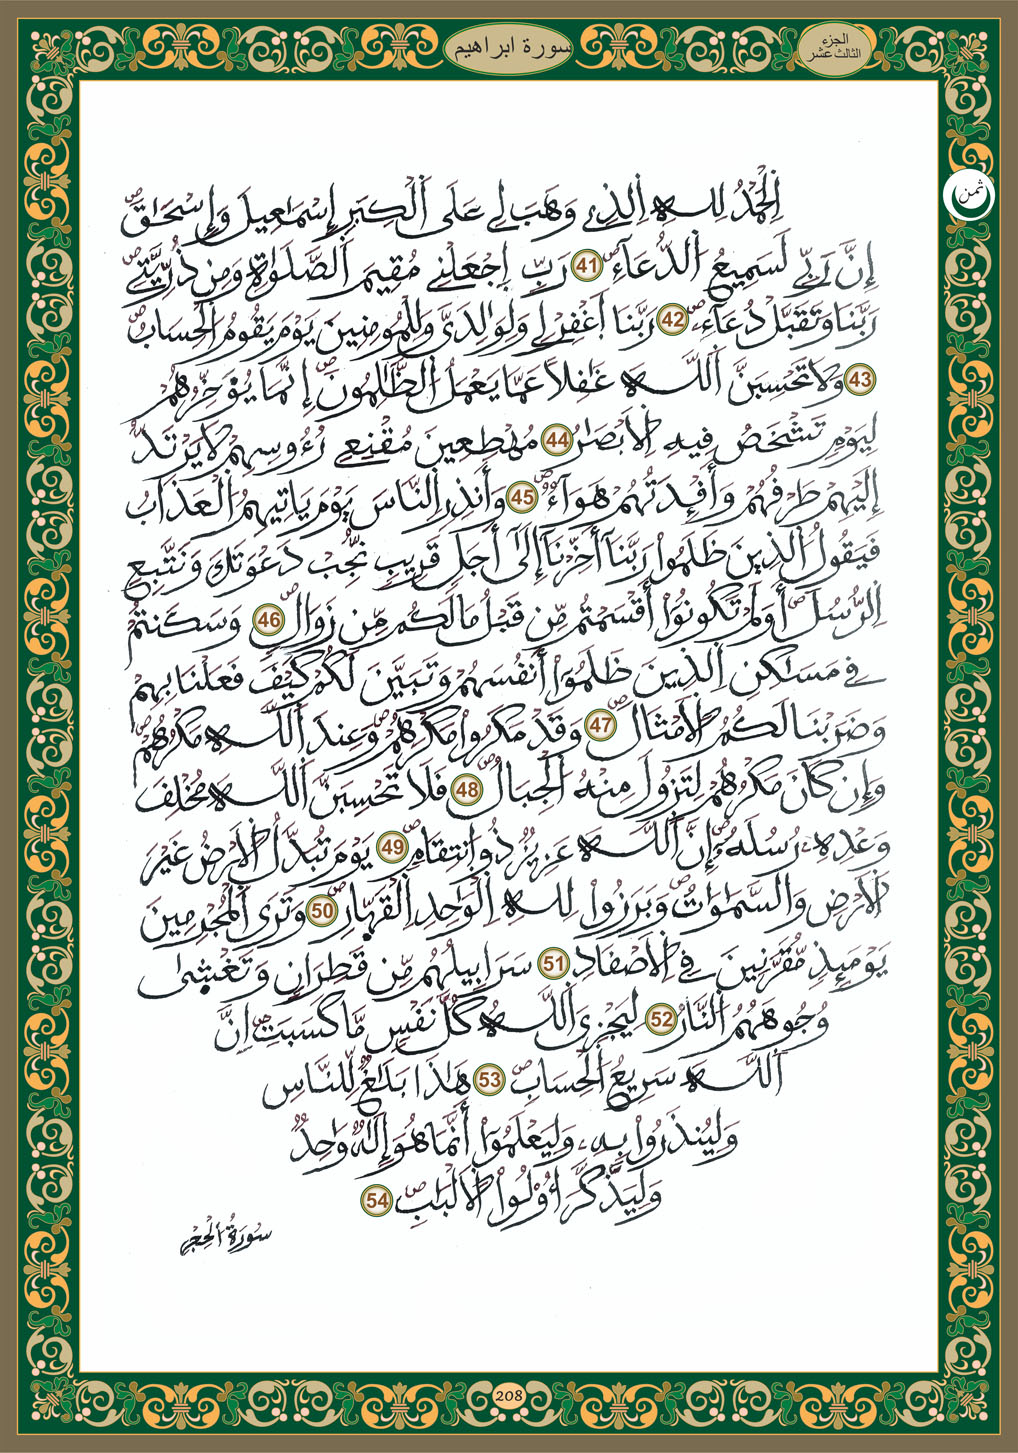 سورة ابراهيم
الجزء
الثالث عشر
ثمن
اِ۬لْحَمْدُ لِلهِ اِ۬لذِے وَهَبَ لِے عَلَى اَ۬لْكِبَرِ إِسْمَٰعِيلَ وَإِسْحَٰقَۖ
إِنَّ رَبِّے لَسَمِيعُ اُ۬لدُّعَآءِۖ 41 رَبِّ اِ۪جْعَلْنِے مُقِيمَ اَ۬لصَّلَوٰةِ وَمِن ذُرِّيَّتِےۖ
رَبَّنَا وَتَقَبَّلْ دُعَآءِۖ 42 رَبَّنَا اَ۪غْفِرْ لِے وَلِوَٰلِدَيَّ وَلِلْمُومِنِينَ يَوْمَ يَقُومُ اُ۬لْحِسَابُۖ
43 وَلَا تَحْسِبَنَّ اَ۬للَّهَ غَٰفِلاً عَمَّا يَعْمَلُ اُ۬لظَّٰلِمُونَۖ إِنَّمَا يُؤَخِّرُهُمْ
لِيَوْمٖ تَشْخَصُ فِيهِ اِ۬لَابْصَٰرُ 44 مُهْطِعِينَ مُقْنِعِے رُءُوسِهِمْ لَا يَرْتَدُّ
إِلَيْهِمْ طَرْفُهُمْ وَأَفْـِٕدَتُهُمْ هَوَآءٞۖ 45 وَأَنذِرِ اِ۬لنَّاسَ يَوْمَ يَاتِيهِمُ اُ۬لْعَذَابُ
فَيَقُولُ اُ۬لذِينَ ظَلَمُواْ رَبَّنَآ أَخِّرْنَآ إِلَىٰٓ أَجَلٖ قَرِيبٖ نُّجِبْ دَعْوَتَكَ وَنَتَّبِعِ
اِ۬لرُّسُلَۖ أَوَلَمْ تَكُونُوٓاْ أَقْسَمْتُم مِّن قَبْلُ مَا لَكُم مِّن زَوَالٖۖ 46 وَسَكَنتُمْ
فِے مَسَٰكِنِ اِ۬لذِينَ ظَلَمُوٓاْ أَنفُسَهُمْ وَتَبَيَّنَ لَكُمْ كَيْفَ فَعَلْنَا بِهِمْ
وَضَرَبْنَا لَكُمُ اُ۬لَامْثَالَۖ 47 وَقَدْ مَكَرُواْ مَكْرَهُمْۖ وَعِندَ اَ۬للَّهِ مَكْرُهُمْۖ
وَإِن كَانَ مَكْرُهُمْ لِتَزُولَ مِنْهُ اُ۬لْجِبَالُۖ 48 فَلَا تَحْسِبَنَّ اَ۬للَّهَ مُخْلِفَ
وَعْدِهِۦ رُسُلَهُۥٓۖ إِنَّ اَ۬للَّهَ عَزِيزٞ ذُو اُ۪نتِقَامٖۖ 49 يَوْمَ تُبَدَّلُ اُ۬لَارْضُ غَيْرَ
اَ۬لَارْضِ وَالسَّمَٰوَٰتُۖ وَبَرَزُواْ لِلهِ اِ۬لْوَٰحِدِ اِ۬لْقَهّ۪ارِۖ 50 وَتَرَى اَ۬لْمُجْرِمِينَ
يَوْمَئِذٖ مُّقَرَّنِينَ فِے اِ۬لَاصْفَادِۖ 51 سَرَابِيلُهُم مِّن قَطِرَانٖ وَتَغْش۪ىٰ
وُجُوهَهُمُ اُ۬لنَّارُۖ 52 لِيَجْزِيَ اَ۬للَّهُ كُلَّ نَفْسٖ مَّا كَسَبَتِۖ اِنَّ
اَ۬للَّهَ سَرِيعُ اُ۬لْحِسَابِۖ 53 هَٰذَا بَلَٰغٞ لِّلنَّاسِ
وَلِيُنذَرُواْ بِهِۦ وَلِيَعْلَمُوٓاْ أَنَّمَا هُوَ إِلَٰهٞ وَٰحِدٞ
وَلِيَذَّكَّرَ أُوْلُواْ اُ۬لَالْبَٰبِۖ 54
سُورَةُ اُ۬لْحِجْرِ
208